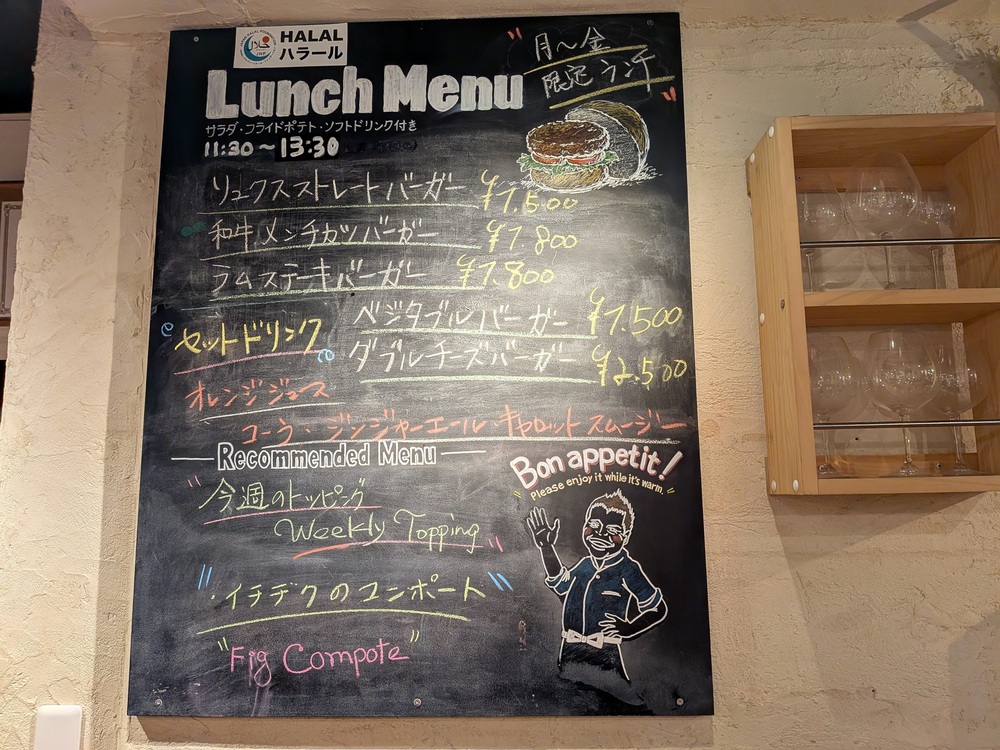 HALAL
ハラール
Lunch Menu
月～金
限定ランチ
サラダ・フライドポテト・ソフトドリンク付き
11:30～13:30
リュクスストレートバーガー ¥1.500
和牛メンチカツバーガー ¥1.800
ラムステーキバーガー ¥1.800
ベジタブルバーガー ¥1.500
ダブルチーズバーガー ¥2.500
セットドリンク
オレンジジュース
コーラ・ジンジャーエール・キャロットスムージー
Recommended Menu
Bon appetit!
Please enjoy it while it's warm.
"今週のトッピング
Weekly Topping"
"・イチヂクのコンポート"
"Fig Compote"